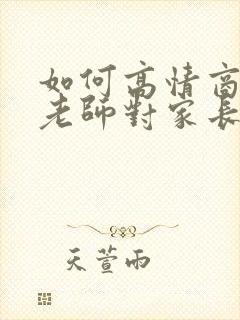 如何高情商
老師對家長
天萱雨